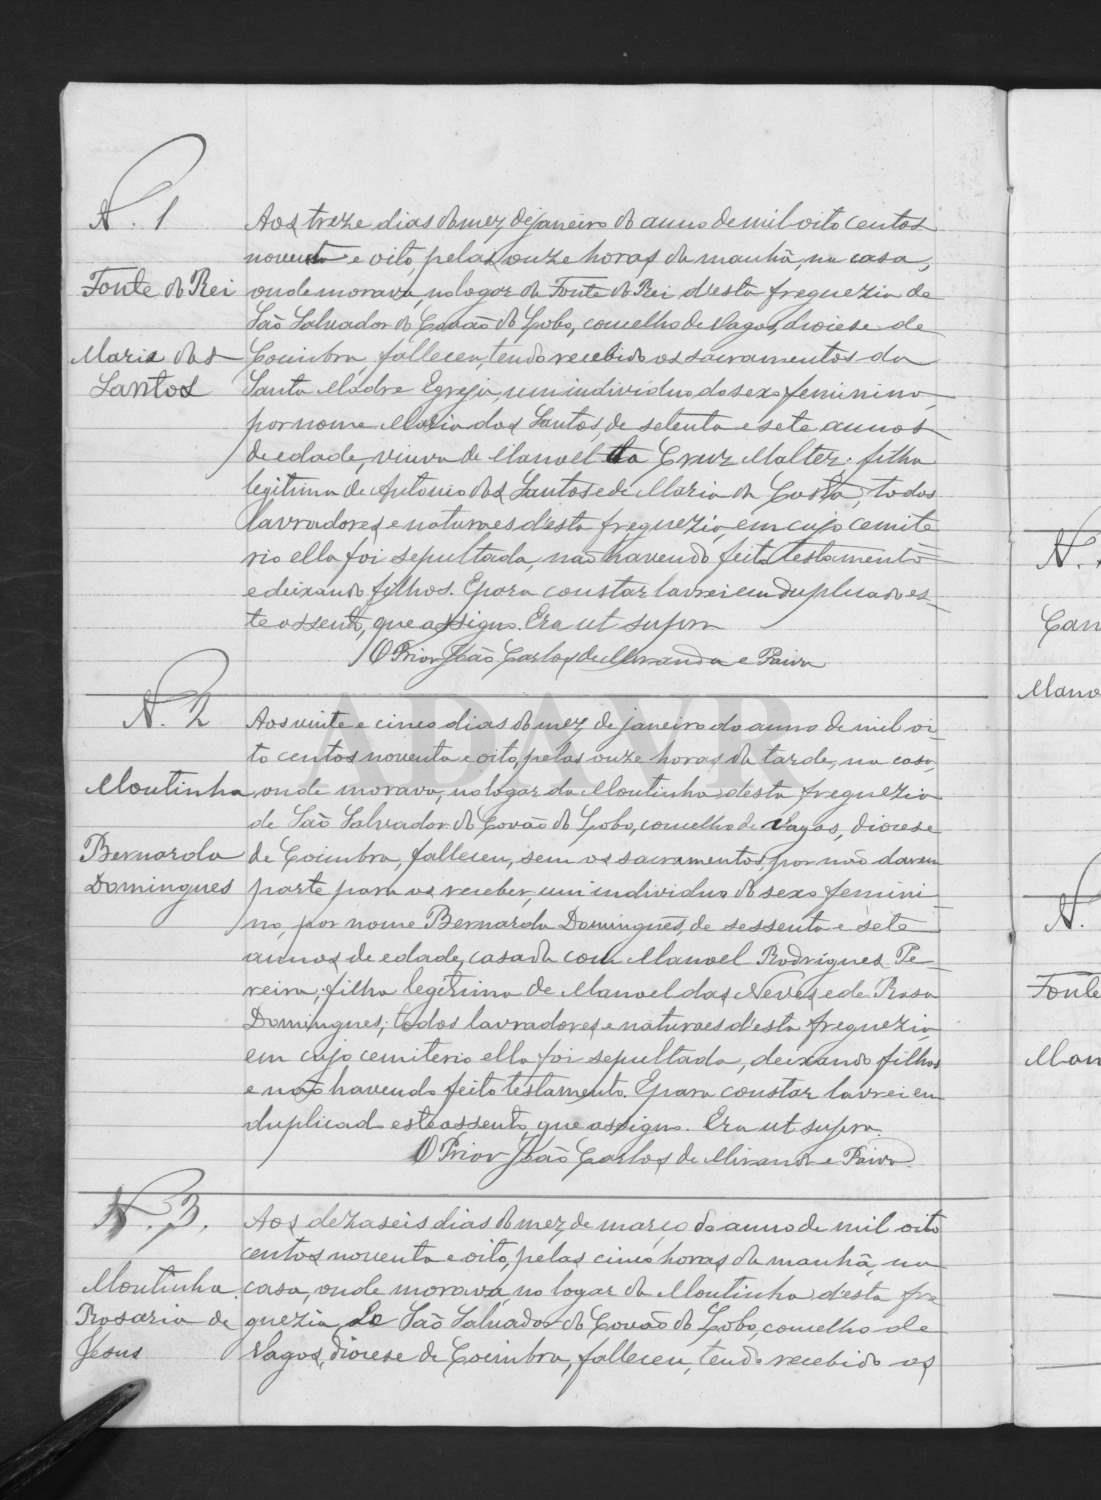 N. 1
Fonte do Rei
Maria dos
Santos
Aos treze dias do mez de janeiro do anno de mil oito centos
noventa e oito, pelas onze horas da manhã, na casa,
onde morava, no logar da Fonte do Rei d'esta freguezia de
São Salvador do Covão do Lobo, concelho de Vagos, diocese de
Coimbra, falleceu, tendo recebido os sacramentos da
Santa Madre Egreja, um individuo do sexo feminino,
por nome Maria dos Santos, de setenta e sete annos
de edade, viuva de Manoel da Cruz Malter, filha
legitima de Antonio dos Santos e de Maria da Costa, todos
lavradores e naturaes d'esta freguezia, em cujo cemite
rio ella foi sepultada, não havendo feito testamento
e deixando filhos. E para constar lavrei em duplicado es-
te assento, que assigno. Era ut supra
O Prior João Carlos de Miranda e Paiva
ADAVR
N. 2
Moutinha
Bernarda
Domingues
Aos vinte e cinco dias do mez de janeiro do anno de mil oi-
to centos noventa e oito, pelas onze horas da tarde, na casa,
onde morava, no logar da Moutinha d'esta freguezia
de São Salvador do Covão do Lobo, concelho de Vagos, diocese
de Coimbra, falleceu, sem os sacramentos, por não darem
parte para os receber, um individuo do sexo femini-
no, por nome Bernarda Domingues, de sessenta e sete
annos de edade, casada com Manoel Rodrigues Pe-
reira, filha legitima de Manoel das Neves e de Rosa
Domingues, todos lavradores e naturaes d'esta freguezia,
em cujo cemiterio ella foi sepultada, deixando filhos
e não havendo feito testamento. E para constar lavrei em
duplicado este assento, que assigno. Era ut supra.
O Prior João Carlos de Miranda e Paiva
N. 3.
Moutinha.
Rosaria de
Jesus
Aos dezaseis dias do mez de março do anno de mil oito
centos noventa e oito, pelas cinco horas da manhã, na
casa, onde morava, no logar da Moutinha d'esta fre
guezia de São Salvador do Covão do Lobo, concelho de
Vagos, diocese de Coimbra, falleceu, tendo recebido os
N.
Can
Mano
N.
Fonte
Man